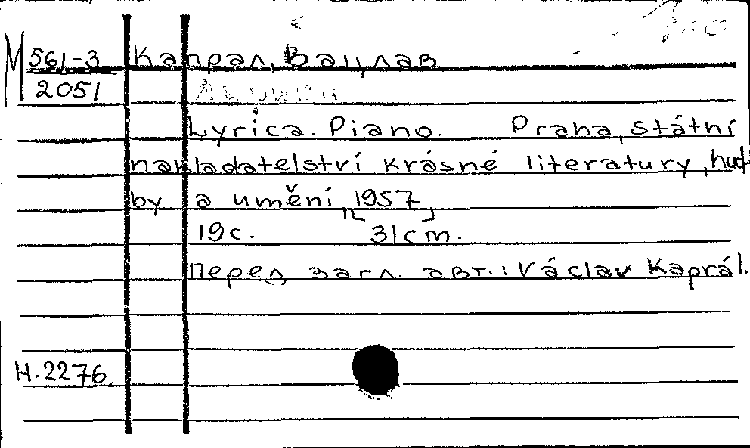 М 561-3 Капрал, Вацлав
2051
Lyrica. Piano. Praha, Státní
nakladatelství krásné literatury, hud-
by a umění, [1957]
19 с. 31 cm.
Перед загл. авт.: Václav Kaprál.
Н.2276